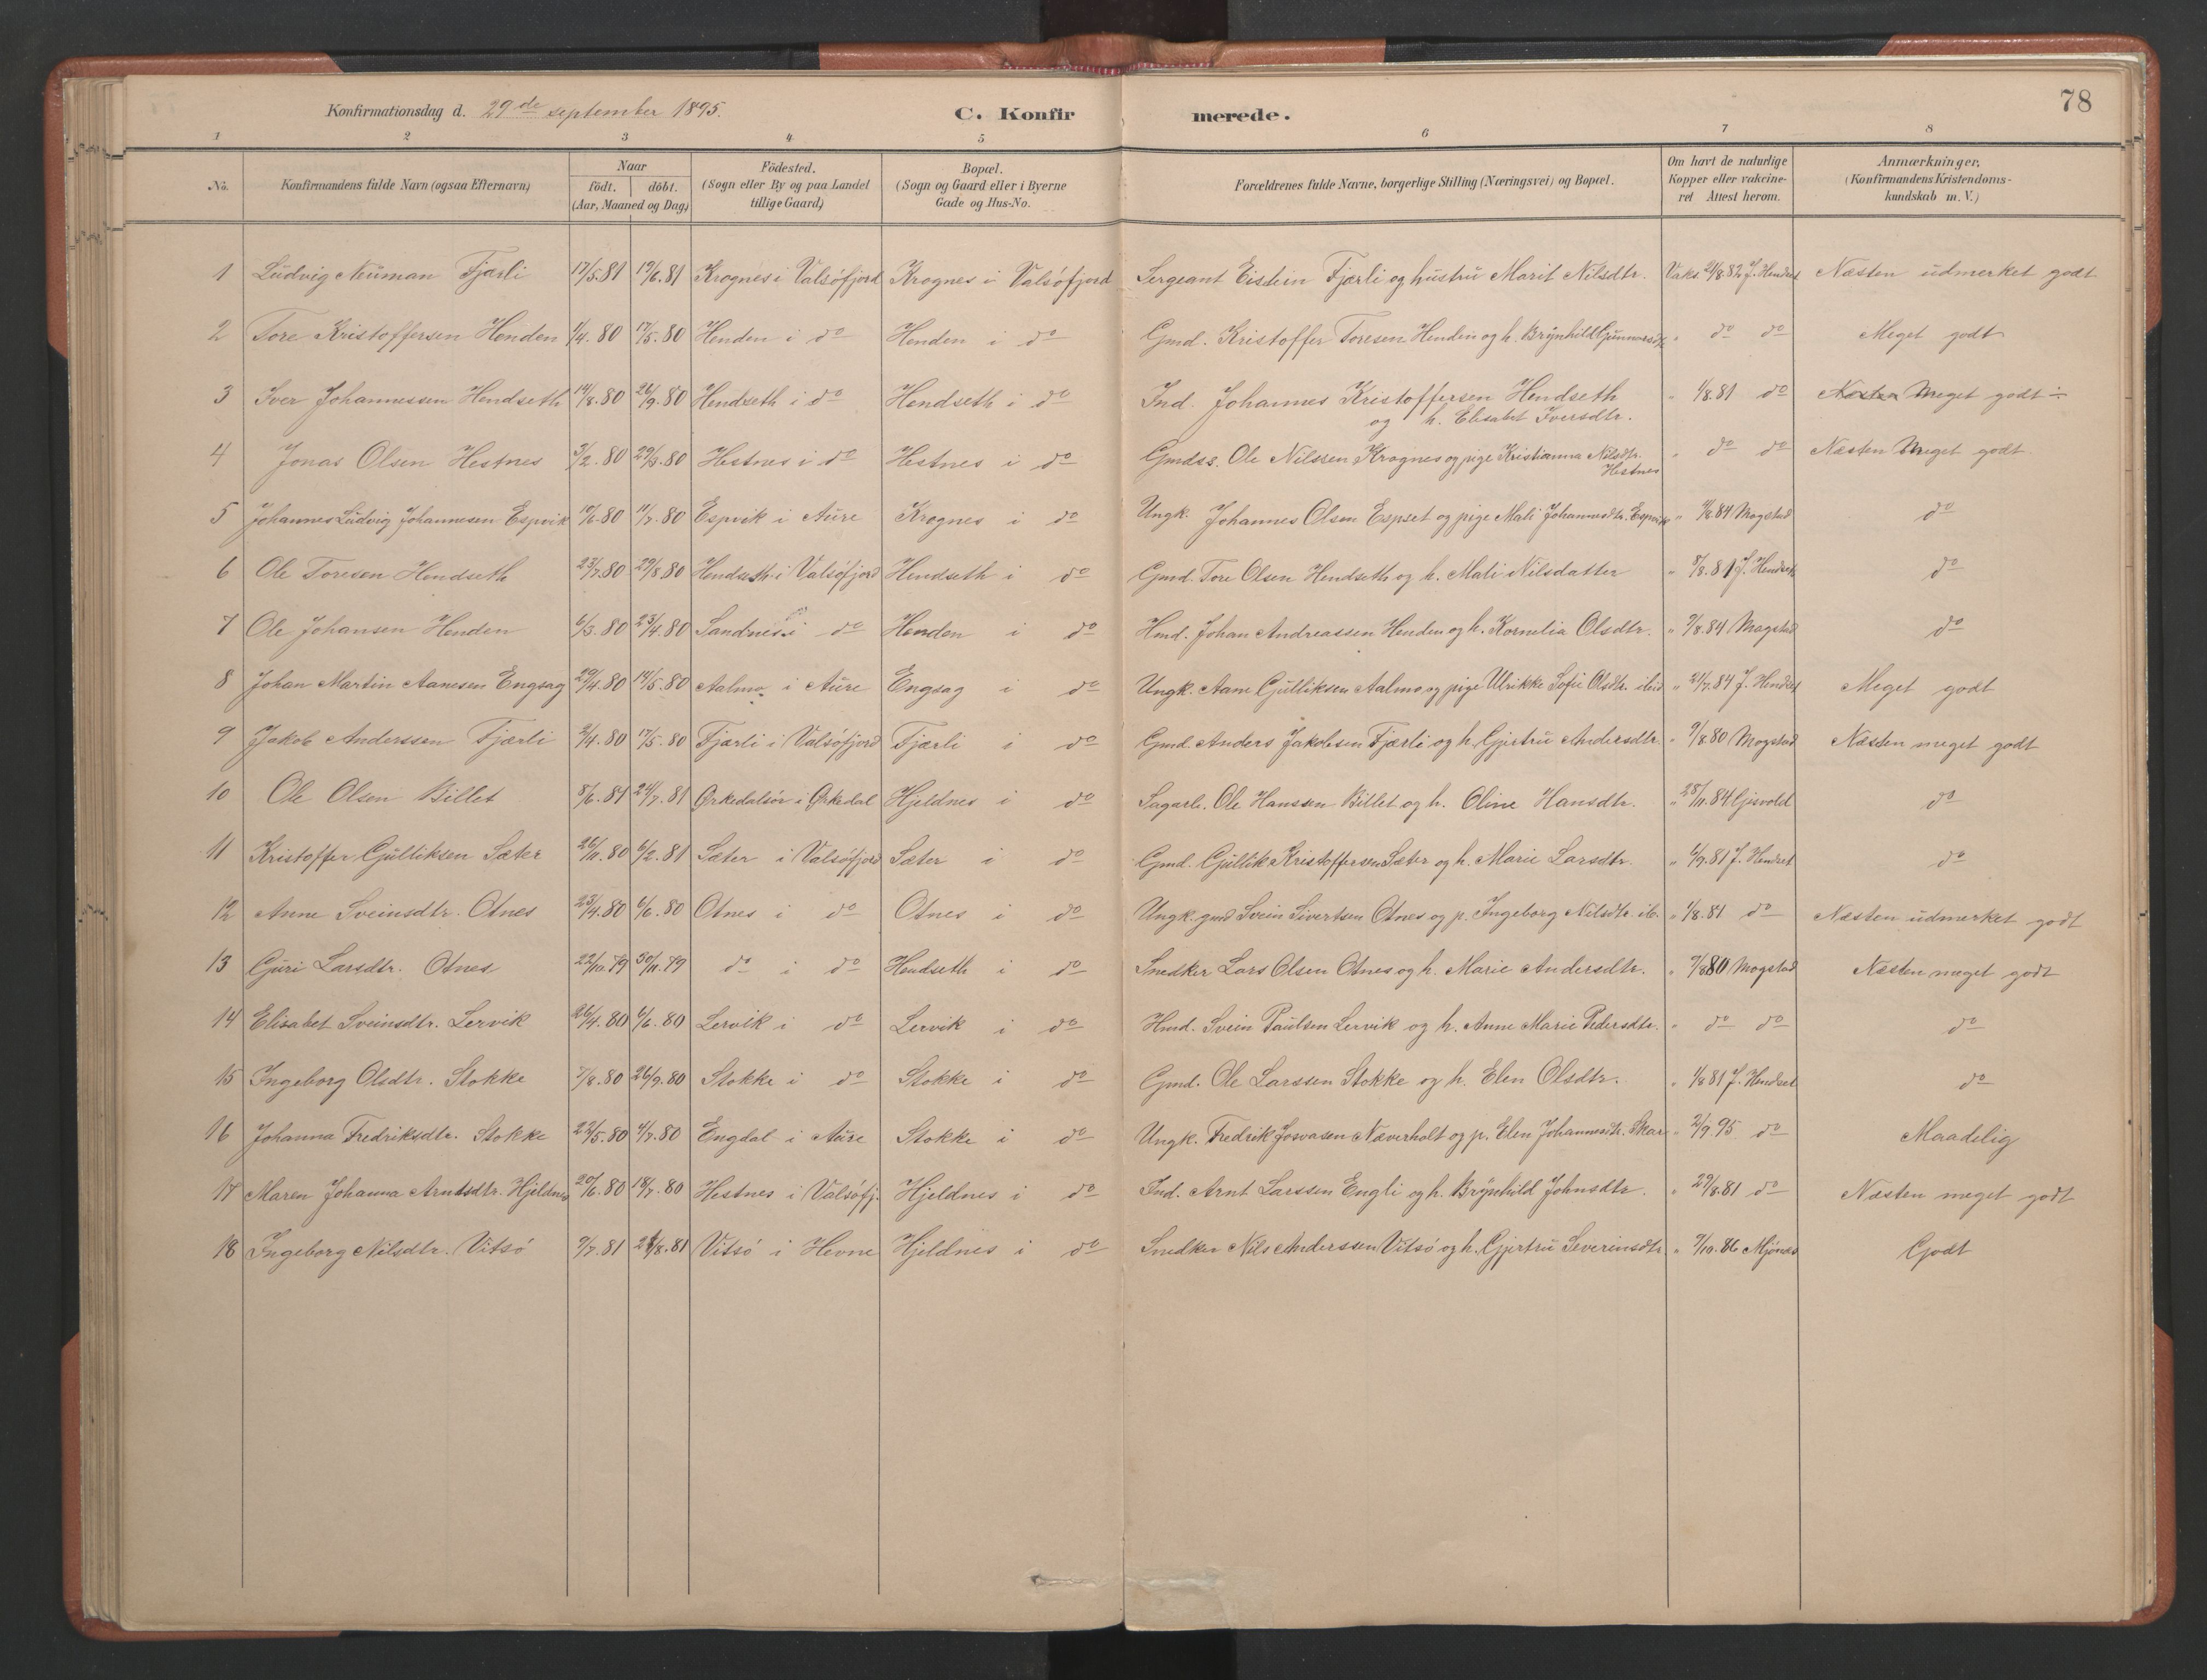 78
Konfirmationsdag d. 29de september 1895.
C. Konfirmerede.
1 2 3 4 5 6 7 8
No. Konfirmandens fulde Navn (ogsaa Efternavn) Naar födt. döbt. (Aar, Maaned og Dag) Födested. (Sogn eller By og paa Landet tillige Gaard) Bopæl. (Sogn og Gaard eller i Byerne Gade og Hus-No. Forældrenes fulde Navne, borgerlige Stilling (Næringsvei) og Bopæl. Om havt de naturlige Kopper eller vakcineret Attest herom. Anmærkninger, (Konfirmandens Kristendomskundskab m. V.)
1 Ludvig Neuman Fjærli 17/5.81 19/6.81 Krognes i Valsöfjord Krognes i Valsöfjord Sergeant Eistein Fjærli og hustru Marit Nilsdtr. Vaks. /8.82 J. Hendset Næsten udmerket godt
2 Tore Kristoffersen Henden 1/4.80 17/5.80 Henden i do Henden i do Gmd. Kristoffer Toresen Henden og h. Brynhild Gunnarsdtr " do do Meget godt
3 Iver Johannessen Hendseth 14/8.80 26/9.80 Hendseth i do Hendseth i do Ind. Johannes Kristoffersen Hendseth " 1/8.81 do Næsten Meget godt ÷
og h. Elisabet Iversdtr.
4 Jonas Olsen Hestnes 3/2.80 29/3.80 Hestnes i do Hestnes i do Gmds. Ole Nilssen Krognes og pige Kristianna Nilsdtr. " do do Næsten Meget godt
Hestnes
5 Johannes Ludvig Johannesen Espvik /6.80 11/7.80 Espvik i Aure Krognes i do Ungk. Johannes Olsen Espset og pige Mali Johannesdtr. Espvik " /8.84 Mogstad do
6 Ole Toresen Hendseth 23/7.80 29/8.80 Hendseth i Valsöfjord Hendseth i do Gmd. Tore Olsen Hendseth og h. Mali Nilsdatter " 8/8.81 J. Hendset do
7 Ole Johansen Henden 6/3.80 23/4.80 Sandnes i do Henden i do Hmd. Johan Andreassen Henden og h. Kornelia Olsdtr. " 9/8.84 Mogstad do
8 Johan Martin Aanesen Engsag 29/4.80 14/5.80 Aalmo i Aure Engsag i do Ungk. Aane Gulliksen Aalmo og pige Ulrikke Sofie Olsdtr. ibid " 21/7.84 J. Hendset Meget godt
9 Jakob Anderssen Fjærli 2/4.80 17/5.80 Fjærli i Valsöfjord Fjærli i do Gmd. Anders Jakobsen Fjærli og h. Gjertru Andersdtr. " 9/8.80 Mogstad Næsten meget godt
10 Ole Olsen Billet 8/6.81 24/7.81 Ørkedalsör i Ørkedal Hjeldnes i do Sagarb. Ole Hanssen Billet og h. Oline Hansdtr. " 28/11.84 Gjisvold do
11 Kristoffer Gulliksen Sæter 26/11.80 6/2.81 Sæter i Valsöfjord Sæter i do Gmd. Gullik Kristoffersen Sæter og h. Marie Larsdtr. " 6/9.81 J. Hendset do
12 Anne Sveinsdtr. Otnes 23/4.80 6/6.80 Otnes i do Otnes i do Ungk. gmd Svein Sivertsen Otnes og p. Ingeborg Nilsdtr. ib. " 1/8.81 do Næsten udmerket godt
13 Guri Larsdtr. Otnes 22/10.79 30/11.79 do i do Hendseth i do Snedker Lars Olsen Otnes og h. Marie Andersdtr. " 9/8 80 Mogstad Næsten meget godt
14 Elisabet Sveinsdtr. Lervik 26/4.80 6/6.80 Lervik i do Lervik i do Hmd. Svein Paulsen Lervik og h. Anne Marie Pedersdtr. " do do do
15 Ingeborg Olsdtr. Stokke 7/8.80 26/9.80 Stokke i do Stokke i do Gmd. Ole Larssen Stokke og h. Elen Olsdtr. " 1/8 81 J. Hendset do
16 Johanna Fredriksdtr. Stokke 22/5.80 4/7.80 Engdal i Aure Stokke i do Ungk. Fredrik Josvasen Næverholt og p. Elen Johannesdtr. Skar " 2/9.95 do Maadelig
17 Maren Johanna Arntsdtr. Hjeldnes 20/6.80 18/7.80 Hestnes i Valsöfj. Hjeldnes i do Ind. Arnt Larssen Engli og h. Brynhild Johnsdtr. " 29/8.81 do Næsten meget godt
18 Ingeborg Nilsdtr. Vitsö 9/7.81 21/8.81 Vitsö i Hevne Hjeldnes i do Snedker Nils Anderssen Vitsö og h. Gjertru Severinsdtr " 7/10.86 Mjönes Godt